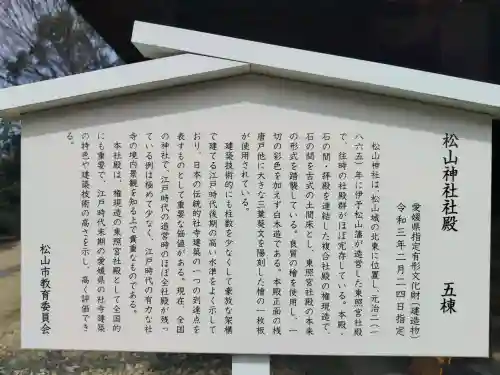 松山神社社殿　　五棟
愛媛県指定有形文化財(建造物)
令和三年二月二四日指定
松山神社は、松山城の北東に位置し、元治二(一
八六五)年に伊予松山藩が造営した東照宮社殿
で、往時の社殿群がほぼ完存している。本殿・
石の間・拝殿を連結した複合社殿の権現造で、
石の間を古式の土間床とし、東照宮社殿の本来
の形式を踏襲している。良質の檜を使用し、一
切の彩色を加えず白木造である。本殿正面の桟
唐戸他に大きな三葉葵文を陽刻した檜の一枚板
が使用されている。
建築技術的にも柱数を少なくして豪放な架構
で建てる江戸時代後期の高い水準をよく示して
おり、日本の伝統的社寺建築の一つの到達点を
表すものとして重要な価値がある。現在、全国
の神社で、江戸時代の造営時のほぼ全社殿が残っ
ている例は極めて少なく、江戸時代の有力な社
寺の境内景観を知る上で貴重なものである。
本社殿は、権現造の東照宮社殿として全国的
にも重要で、江戸時代末期の愛媛県の社寺建築
の特色や建築技術の高さを示し、高く評価でき
る。
松山市教育委員会